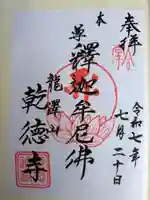 奉拝
令和七年
七月二十日
本尊
釋迦牟尼佛
龍澤山
乾徳寺